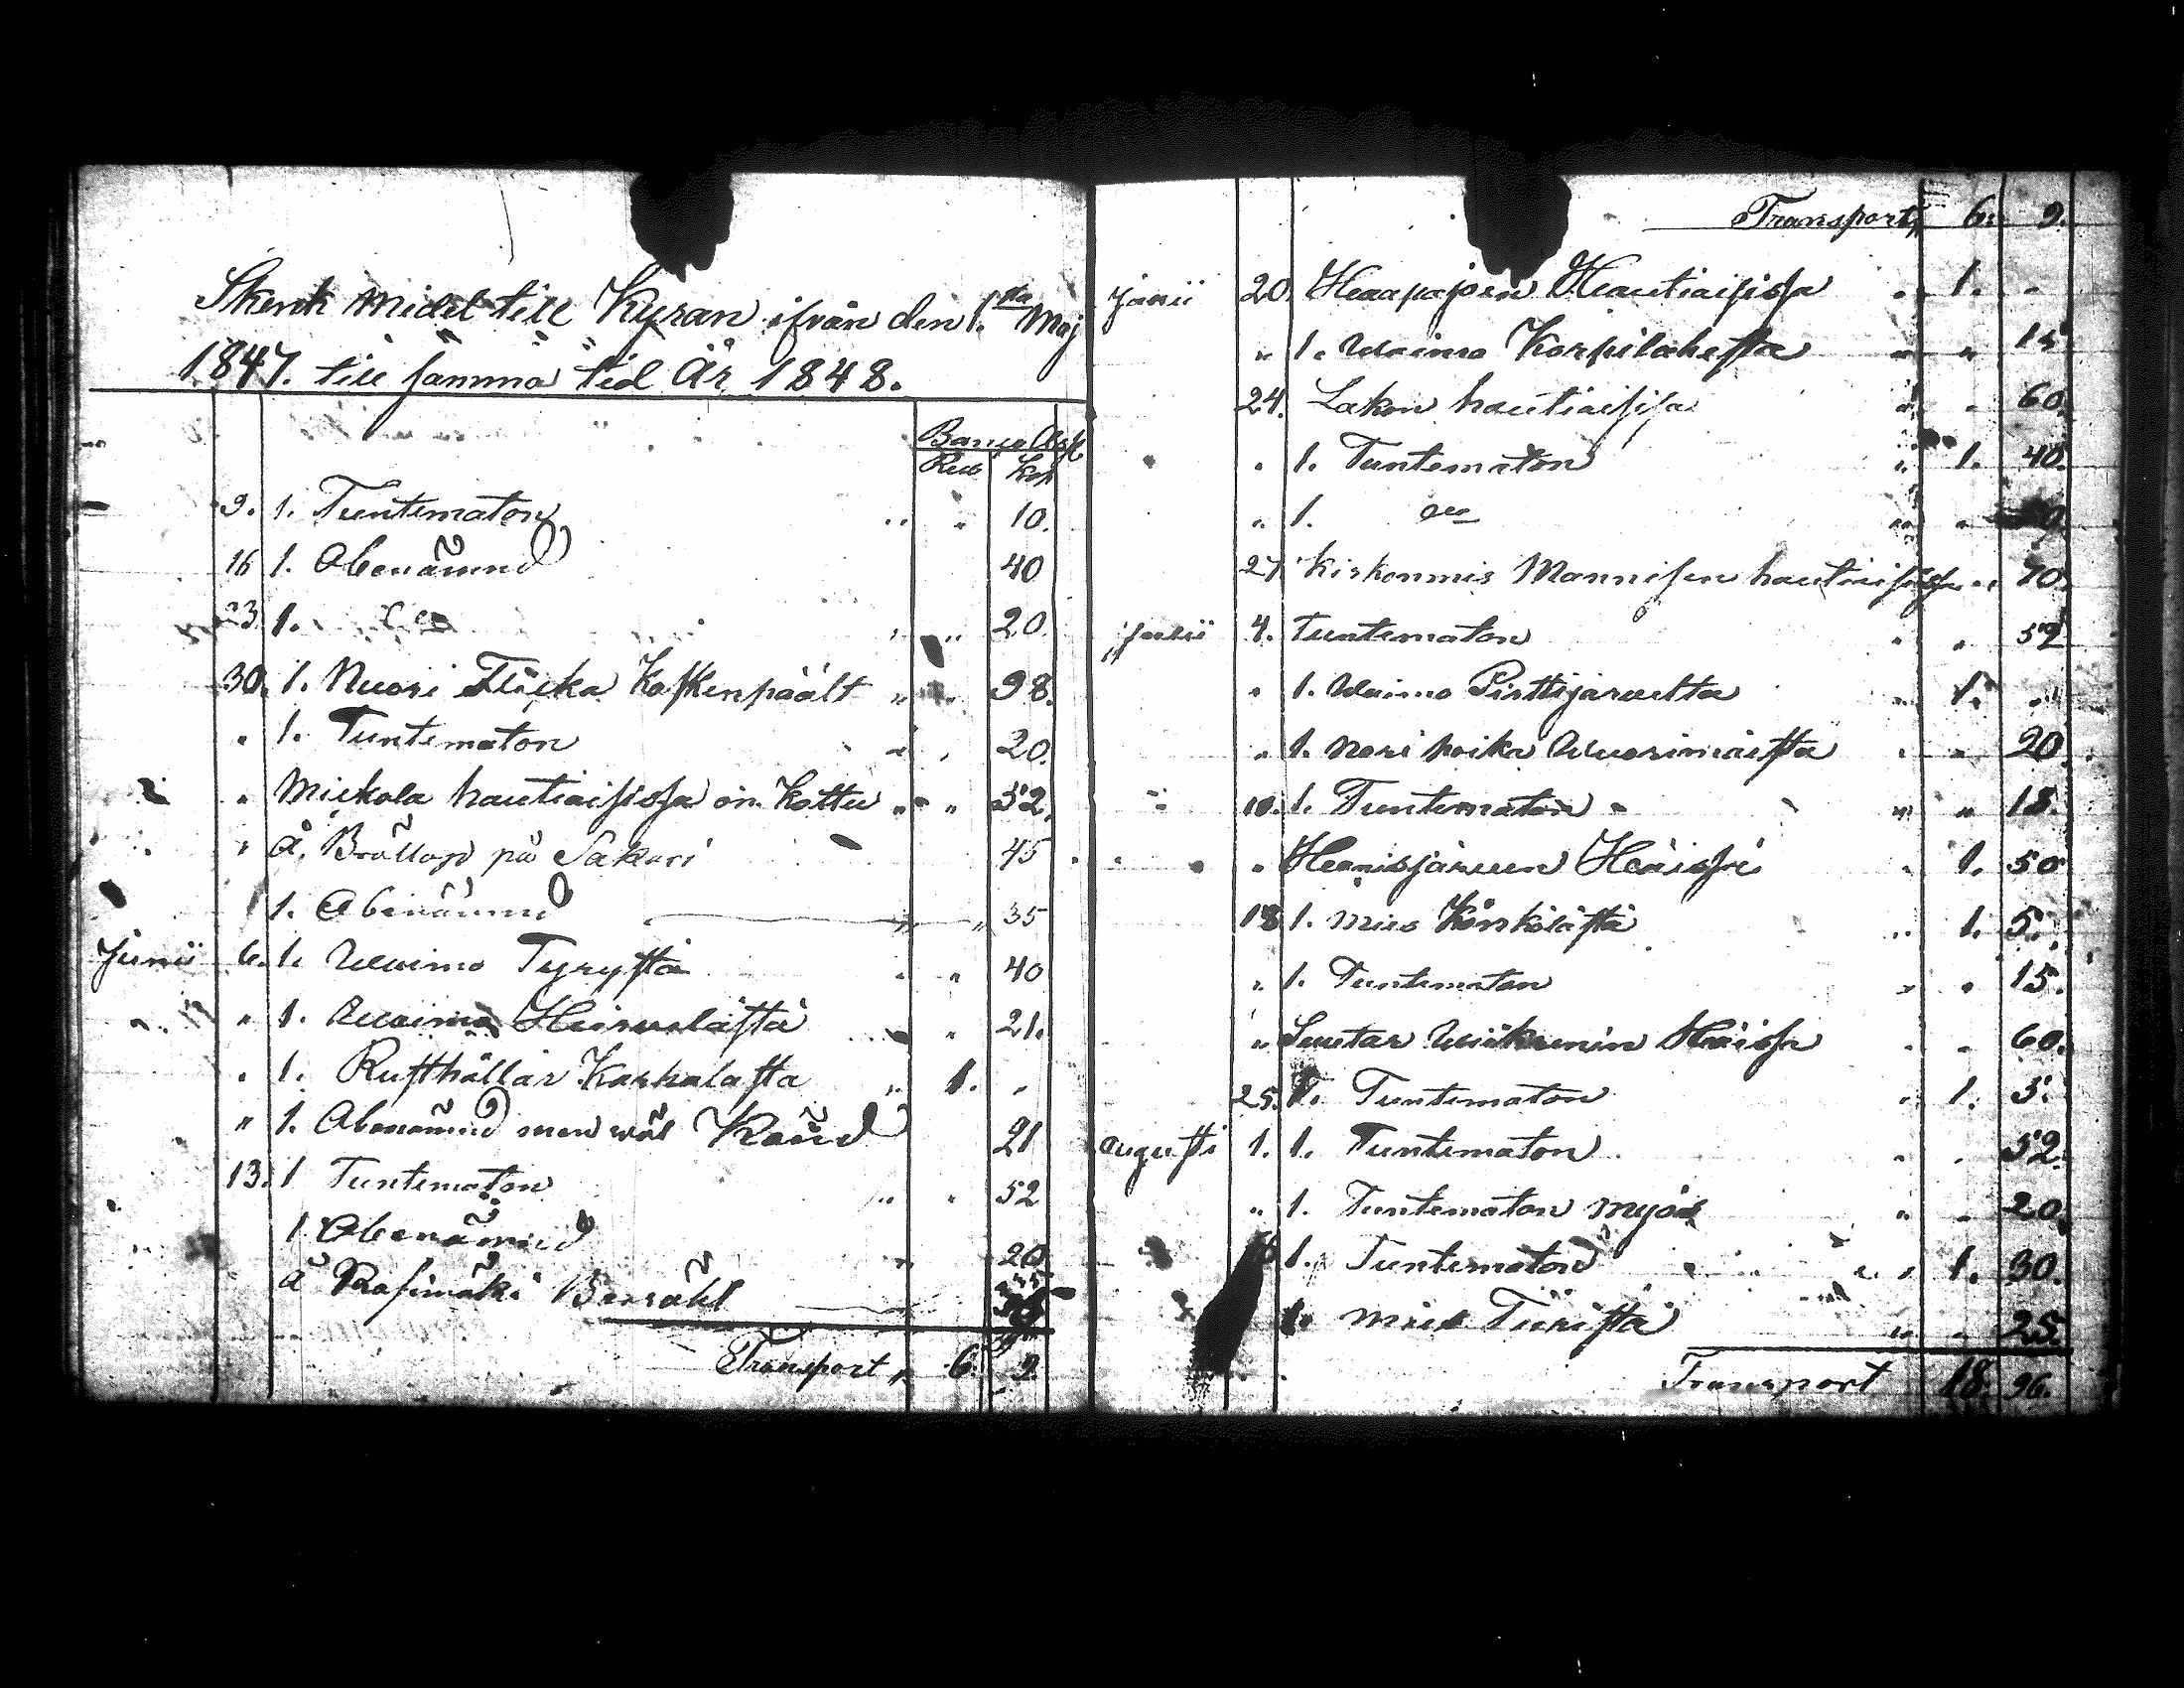 Skenk Midel till Kyran ifrån den 1sta Maj
1847. till samma tid År 1848.
Banco Assg
Rub Kop
9. 1. Tuntematon " " 10.
16 1. Obenämnd 40
23. 1. " " 20.
30. 1. Nuori Flicka Koskenpäält " " 98.
" 1. Tuntematon " " 20.
" Mickola hautiaisissa on Kottu " " 52.
" Å Bröllop på Sakari 45
1. Obenämnd " " 35
Junii 6. 1. Waimo Tyrystä " " 40
" 1. Waimo Hirvelästä " " 21.
" 1. Rusthållar Karkalasta " 1. "
" 1. Obenämnd men wäl Känd 21
13. 1 Tuntematon " " 52
1 Obenämnd " 20
å Rasimäki Barsöhl
Transport " 6. 9.
Transport 6. 9.
Junii 20. Haapajoen Hautiaisissa " 1. "
" 1. Waimo Korpilahesta " " 15
24. Lakon hautiaisissa " " 60.
" 1. Tuntematon " 1. 40.
" 1. " "
27. Kirkonmis Mannisen hautiaisissa " " 70.
Julii 4. Tuntematon " " 52
" 1. Waimo Pirttijärveltä " 1. "
" 1. Nori poika Wuorimäestä " " 20
" 10. 1. Tuntematon " " 18.
" Hernisjärwen Häissä " 1. 50
18 1. Mies Könkölästä " 1. 5.
" 1. Tuntematon " " 15.
" Suutar Häissä " " 60.
25. 1. Tuntematon " 1. 5.
Augusti 1. 1. Tuntematon " " 52.
" 1. Tuntematon myös " " 20.
1. Tuntematon " 1. 30.
1. Mies Tiiristä " " 25.
Transport 18. 96.